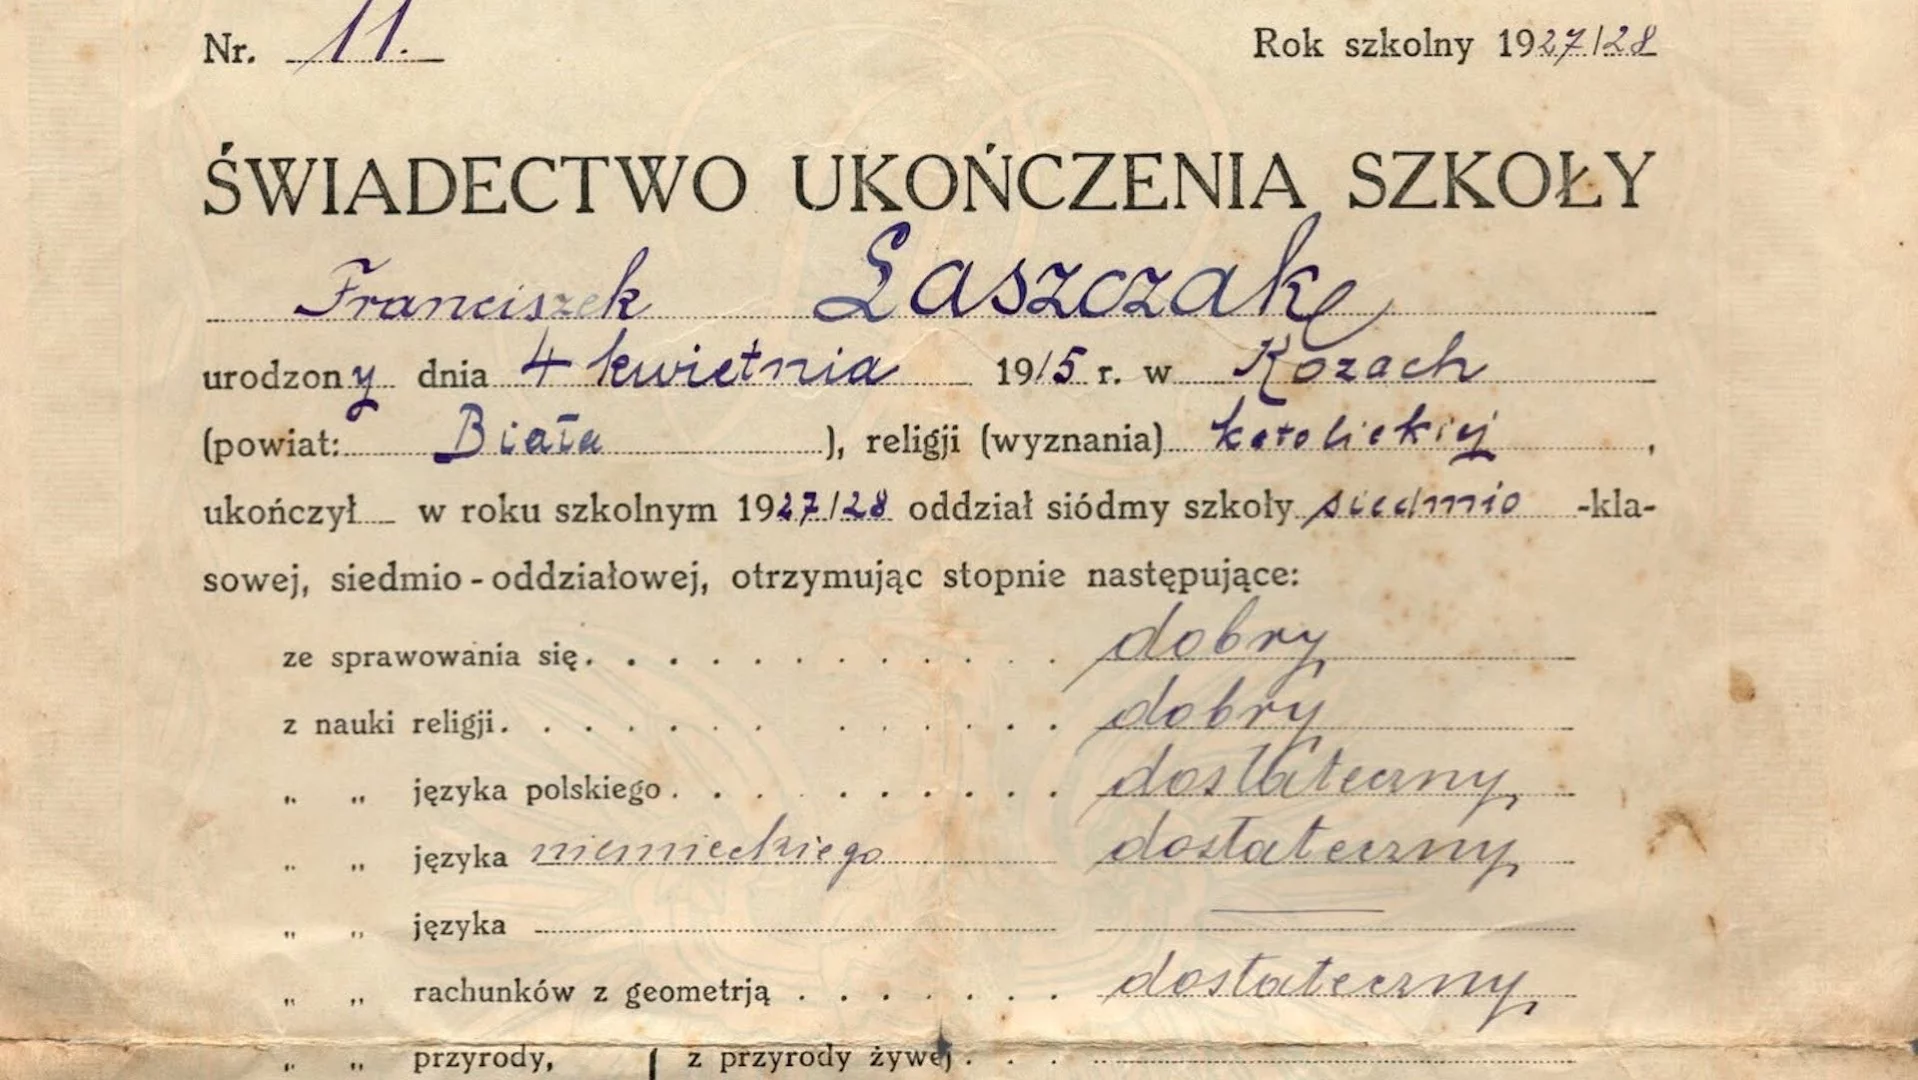 Nr. 11. Rok szkolny 1927/28
ŚWIADECTWO UKOŃCZENIA SZKOŁY
Franciszek Łaszczak
urodzony dnia 4 kwietnia 1915 r. w Kozach
(powiat: Biała ), religji (wyznania) katolickiej ,
ukończył w roku szkolnym 1927/28 oddział siódmy szkoły siedmio -kla-
sowej, siedmio-oddziałowej, otrzymując stopnie następujące:
ze sprawowania się . . . . . . . . . . . dobry
z nauki religji . . . . . . . . . . . . dobry
„ „ języka polskiego . . . . . . . . . dostateczny
„ „ języka niemieckiego dostateczny
„ „ języka —
„ „ rachunków z geometrją . . . . . . . dostateczny
„ „ przyrody, ( z przyrody żywej . . .